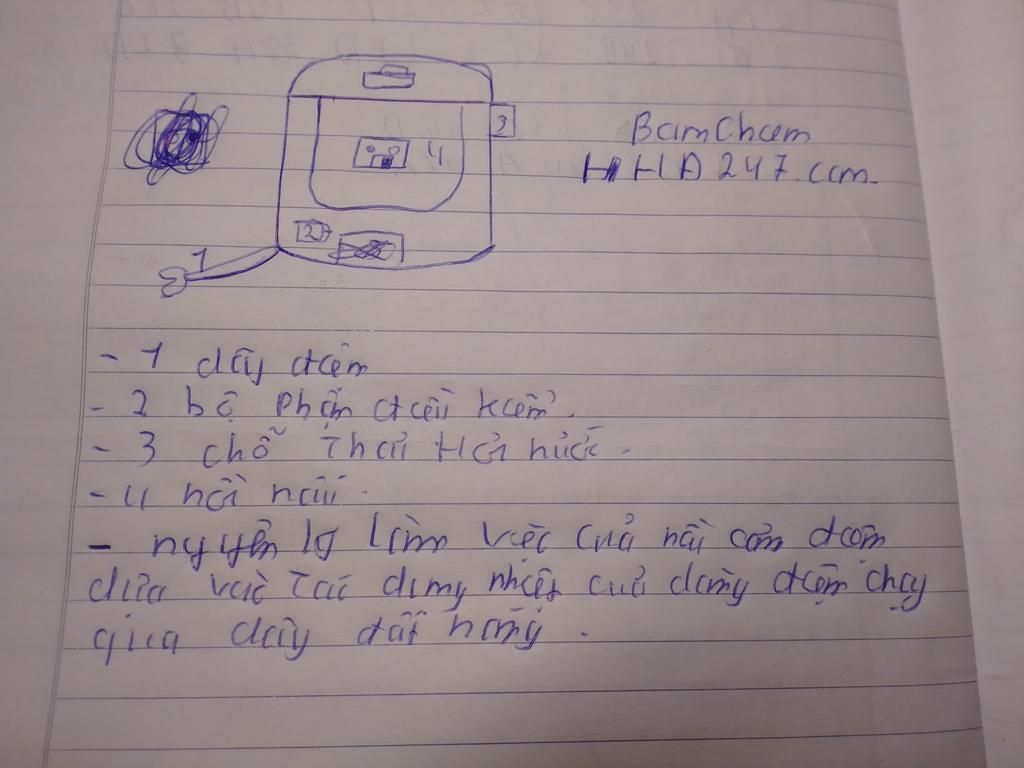 3
BamCham
HHA247.com.
4
2
1
- 1 dây điện
- 2 bộ phận điều kiển.
- 3 chỗ thoát hơi nước.
- 4 nồi nấu.
- nguyên lý làm việc của nồi cơm điện
dựa vào tác dụng nhiệt của dòng điện chạy
qua dây đốt nóng.